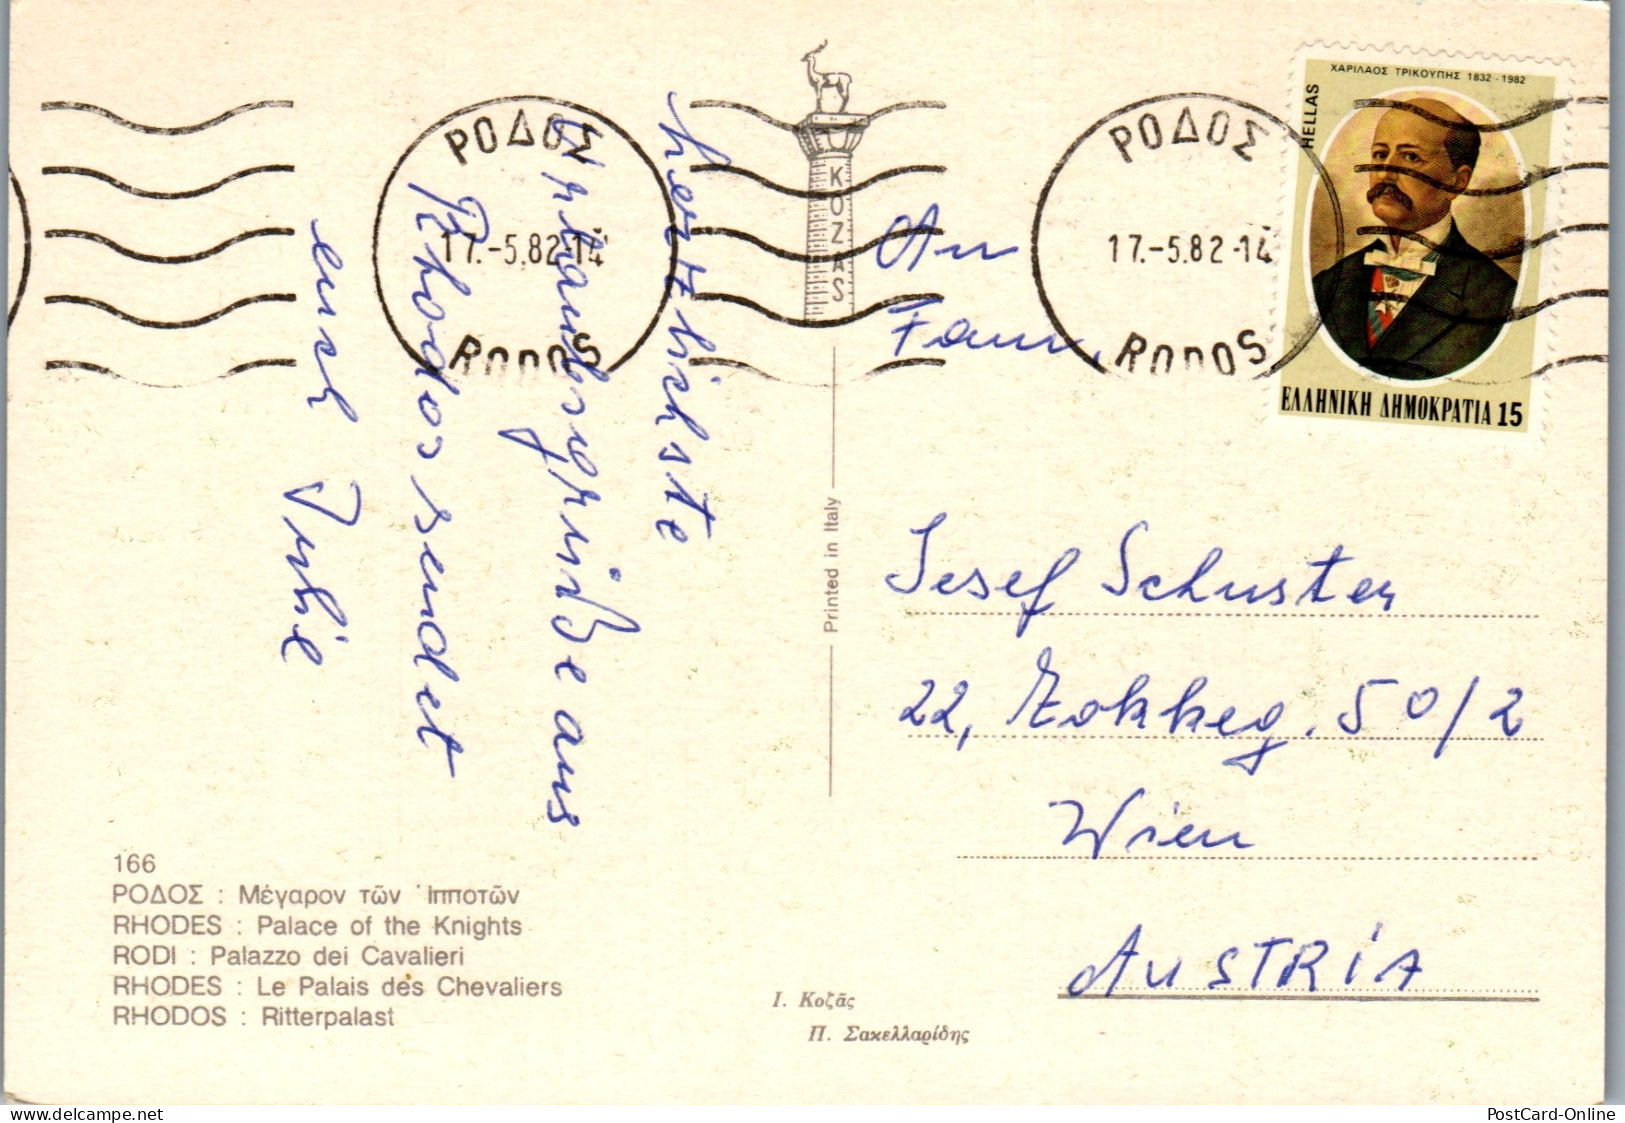 ΡΟΔΟΣ
17.-5.82-14
RODOS
KOZAS
ΡΟΔΟΣ
17.-5.82-14
RODOS
ΧΑΡΙΛΑΟΣ ΤΡΙΚΟΥΠΗΣ 1832 - 1982
HELLAS
ΕΛΛΗΝΙΚΗ ΔΗΜΟΚΡΑΤΙΑ 15
Herzlichste
Urlaubsgrüße aus
Rhodos sendet
euch
An
Fam.
Josef Schuster
22, Zokkeg. 50/2
Wien
AUSTRIA
Printed in Italy
166
ΡΟΔΟΣ : Μέγαρον τῶν Ἱπποτῶν
RHODES : Palace of the Knights
RODI : Palazzo dei Cavalieri
RHODES : Le Palais des Chevaliers
RHODOS : Ritterpalast
Ι. Κοζᾶς
Π. Σακελλαρίδης
www.delcampe.net
PostCard-Online